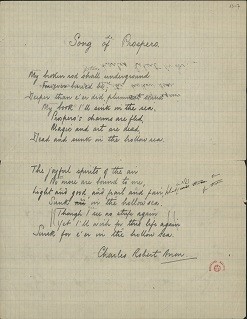 Song of Prospero.
My broken rod shall underground
Deeper than e'er did plummet sound
My book I'll sink in the sea.
Prospero's charms are fled,
Magic and art are dead,
Dead and sunk in the hollow sea.
The joyful spirits of the air
No more are bound to me,
Light and good, and and fair
Sunk in the hollow sea.
Though I see no strife again
Yet I'll work for this life again
Sunk for e'er in the hollow sea.
Charles Robert Anon